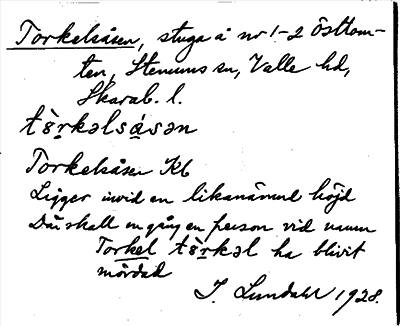 Torkelsåsen, stuga å nr 1-2 Östtom-
ten, Stenums sn, Valle hd,
Skarab. l.
tὸ̀rkəlsåsən
Torkelsåsen Kb
Ligger invid en likanämnd höjd
Där skall en gång en person vid namn
Torkel tὸ̀rkəl ha blivit
mördad
J. Lundahl 1928.